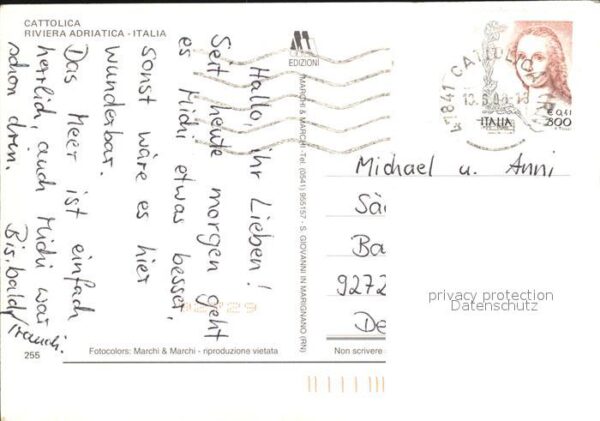 CATTOLICA
RIVIERA ADRIATICA - ITALIA
Hallo, ihr Lieben!
Seit heute morgen geht
es Michi etwas besser,
sonst wäre es hier
wunderbar.
Das Meer ist einfach
herrlich, auch Michi war
schon drin.
Bis bald
EDIZIONI
MARCHI & MARCHI - Tel. (0541) 955157 - S. GIOVANNI IN MARIGNANO (RN)
47841 CATTOLICA
ITALIA
0,41
800
Michael u. Anni
Sä
Ba
9272
De
privacy protection
Datenschutz
255
Fotocolors: Marchi & Marchi - riproduzione vietata
Non scrivere